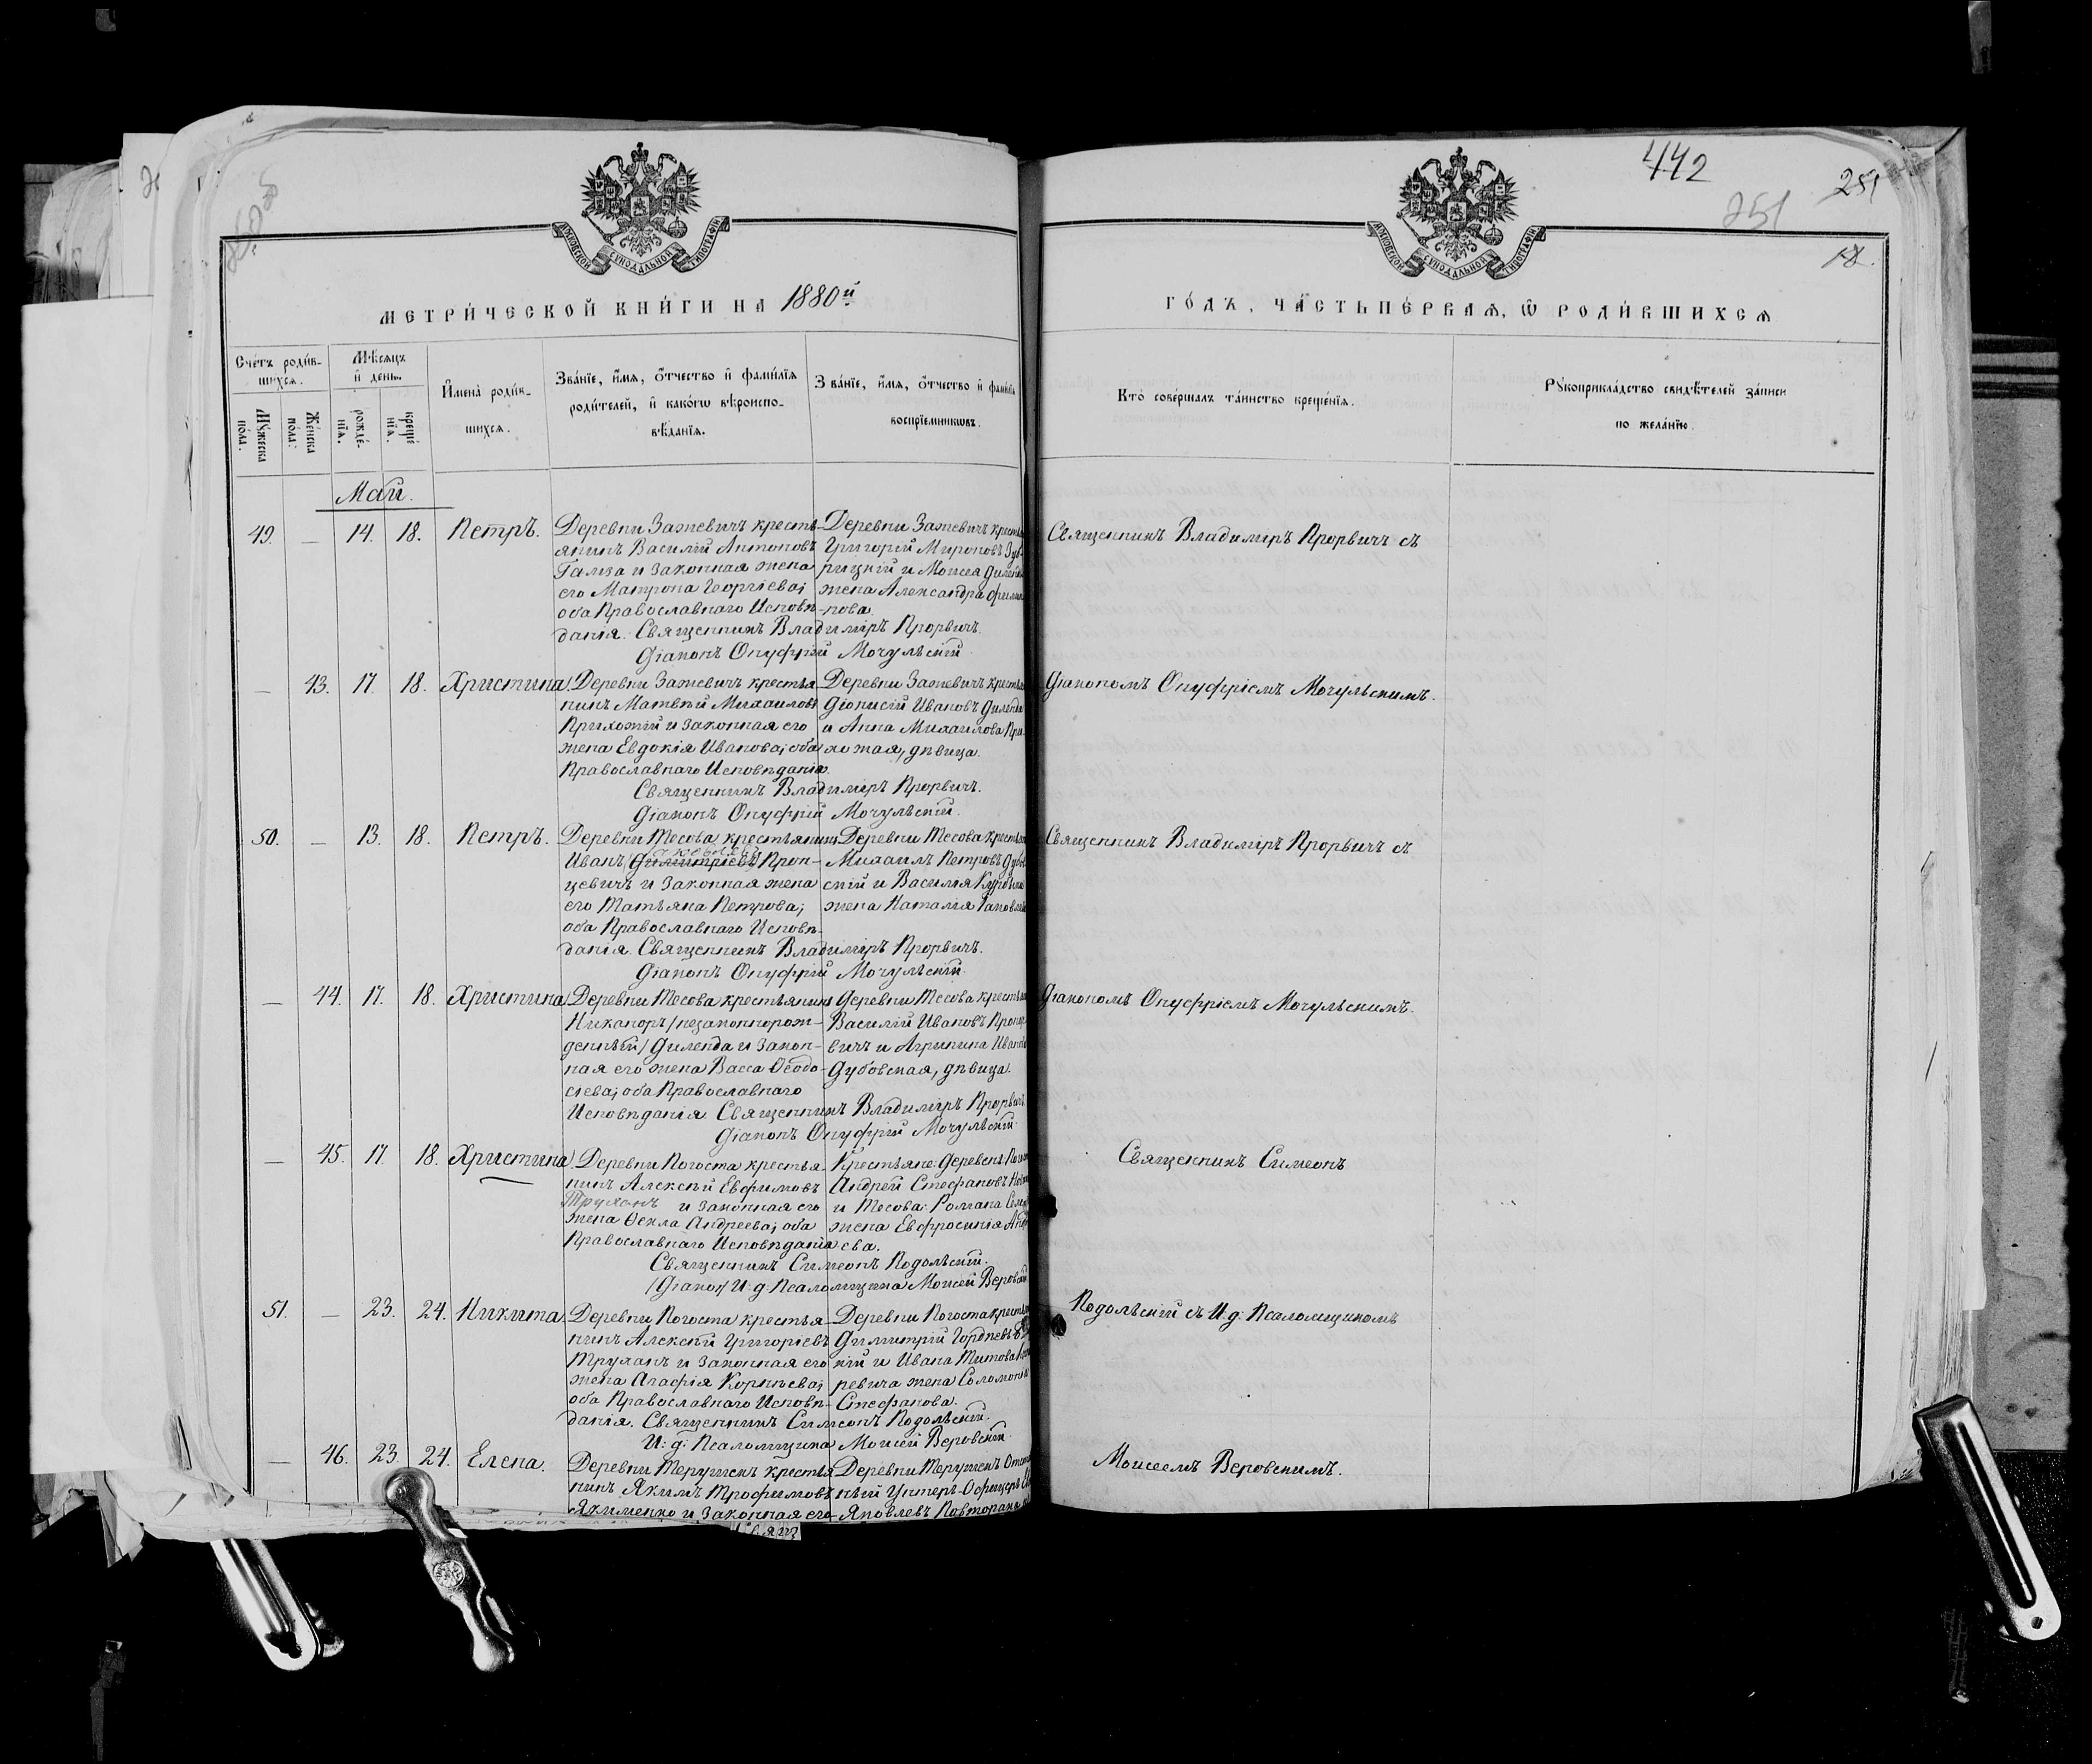 442
251
251
18.
МОСКОВСКОЙ СѴНОДАЛЬНОЙ ТИПОГРАФІИ
МОСКОВСКОЙ СѴНОДАЛЬНОЙ ТИПОГРАФІИ
МЕТРИ́ЧЕСКОЙ КНИ́ГИ НА 1880й
ГО́ДЪ, ЧА́СТЬ ПЕ́РВАЯ, Ѡ РОДИ́ВШИХСЯ
Сче́тъ роди́вшихся.
Мѣсяцъ и день.
Му́жеска по́ла.
Же́нска по́ла.
рожде́нїя.
креще́нїя.
Имена̀ роди́вшихся.
Зва́нїе, и́мя, о́тчество и фами́лїя
роди́телей, и како́гѡ вѣроиспо-
вѣ́данїя.
Зва́нїе, и́мя, о́тчество и фами́лїя
воспрїе́мникѡвъ.
Кто̀ соверша́лъ та́инство креще́нїя.
Рꙋкоприкла́дство свидѣ́телей за́писи
по жела́нїю.
Май.
49. — 14. 18. Петръ.
Деревни Зажевичъ кресть-
янинъ Василій Антоновъ
Гамза и законная жена
его Матрона Георгіева;
оба Православнаго Исповѣ-
данія. Священникъ Владиміръ Прорвичъ.
Діаконъ Онуфрій Мочульскій.
Деревни Зажевичъ
Григорій Мироновъ
рицкій и Моисея
жена Александра
нова.
Священникъ Владиміръ Прорвичъ съ
— 43. 17. 18. Христина.
Деревни Зажевичъ крестья-
нинъ Матвѣй Михаиловъ
Прихожій и законная его
жена Евдокія Иванова; оба
Православнаго Исповѣданія.
Священникъ Владиміръ Прорвичъ.
Діаконъ Онуфрій Мочульскій.
Деревни Зажевичъ
Діонисій Ивановъ
и Анна Михаилова При-
хожая, дѣвица.
Діакономъ Онуфріемъ Мочульскимъ.
50. — 13. 18. Петръ.
Деревни Тесова крестьянинъ
Иванъ Димитріевъ Проп-
цевичъ и законная жена
его Татьяна Петрова;
оба Православнаго Исповѣ-
данія. Священникъ Владиміръ Прорвичъ.
Діаконъ Онуфрій Мочульскій.
Деревни Тесова
Михаилъ Петровъ
скій и Василія
жена Наталія
Священникъ Владиміръ Прорвичъ съ
— 44. 17. 18. Христина.
Деревни Тесова крестьянинъ
Никаноръ /незаконнорож-
денный/ Диленда и закон-
ная его жена Васса Ѳеодо-
сіева; оба Православнаго
Исповѣданія. Священникъ Владиміръ Прорвичъ.
Діаконъ Онуфрій Мочульскій.
Деревни Тесова
Василій Ивановъ
вичъ и Агрипина
Дубовская, дѣвица.
Діакономъ Онуфріемъ Мочульскимъ.
— 45. 17. 18. Христина.
Деревни Погоста крестья-
нинъ Алексѣй Евфимовъ
Труханъ и законная его
жена Ѳекла Андреева; оба
Православнаго Исповѣданія
Священникъ Симеонъ Подольскій.
/Діакон/ И. д. Псаломщика Моисей Веровскій
Крестьяне: деревень:
Андрей Стефановъ
и Тесова: Романа
жена Евфросинія
ева.
Священникъ Симеонъ
51. — 23. 24. Никита.
Деревни Погоста крестья-
нинъ Алексѣй Григоріевъ
Труханъ и законная его
жена Агафія Корнѣева;
оба Православнаго Исповѣ-
данія. Священникъ Симеонъ Подольскій.
И. д. Псаломщика Моисей Веровскій.
Деревни Погоста
Димитрій Гордѣевъ
кій и Ивана Титова
ревича жена
Стефанова.
Подольскій съ И. д. Псаломщикомъ
— 46. 23. 24. Елена.
Деревни Терушекъ крестья-
нинъ Якимъ Трофимовъ
Якименко и законная его
Деревни Терушекъ
ный Унтеръ-Офицеръ
Яковлевъ
Моисеемъ Веровскимъ.